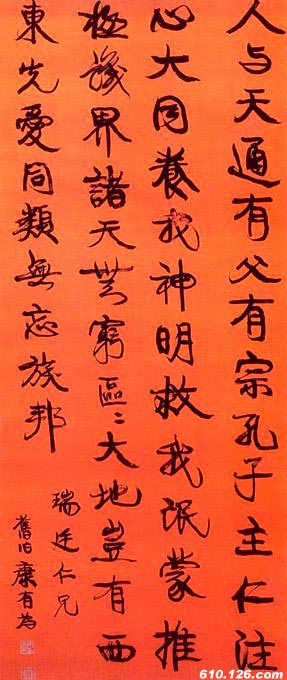 人与天通有父有宗孔子主仁注
心大同養我神明救我氓蒙推
極議界諸天無窮區〻大地豈有西
東先愛同類無忘族邦
瑞廷仁兄
舊旧康有為
610.126.com